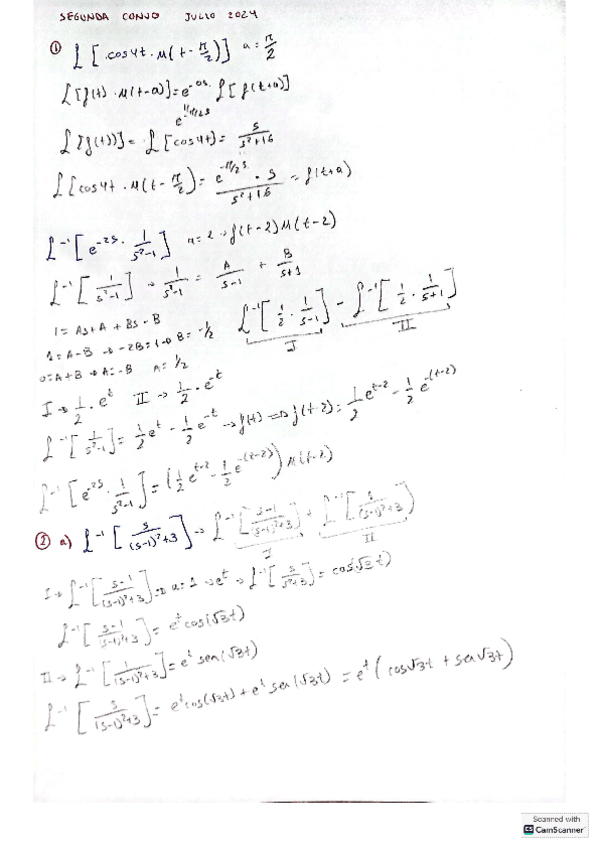 SEGUNDA CONVO JULIO 2024
① L[cos4t · u(t - π/2)] a = π/2
L[f(t) · u(t-a)] = e^-as · L[f(t+a)]
e^-π/2 s
L[f(t)] = L[cos4t] = s/(s²+16)
L[cos4t · u(t - π/2) = (e^-π/2 s · s)/(s²+16) = f(t+a)
L⁻¹[e^-2s · 1/(s²-1)] a = 2 → f(t-2)u(t-2)
L⁻¹[1/(s²-1)] → 1/(s²-1) = A/(s-1) + B/(s+1)
1 = As+A + Bs-B L⁻¹[1/2 · 1/(s-1)] - L⁻¹[1/2 · 1/(s+1)]
1 = A-B → -2B = 1 → B = -1/2 I II
0 = A+B → A = -B A = 1/2
I → 1/2 · e^t II → 1/2 · e^-t
L⁻¹[1/(s²-1)] = 1/2 e^t - 1/2 e^-t → f(t) ⇒ f(t-2) = 1/2 e^t-2 - 1/2 e^-(t-2)
L⁻¹[e^-2s · 1/(s²-1)] = (1/2 e^t-2 - 1/2 e^-(t-2)) u(t-2)
② a) L⁻¹[s/((s-1)²+3)] → L⁻¹[(s-1)/((s-1)²+3)] + L⁻¹[/((s-1)²+3)]
I II
I → L⁻¹[(s-1)/((s-1)²+3)] ⇒ a = 1 → e^t → L⁻¹[s/(s²+3)] = cos(√3 t)
L⁻¹[(s-1)/((s-1)²+3)] = e^t cos(√3t)
II → L⁻¹[1/((s-1)²+3)] = e^t sen(√3t)
L⁻¹[s/((s-1)²+3)] = e^t cos(√3t) + e^t sen(√3t) = e^t (cos√3t + sen√3t)
Scanned with
CS CamScanner